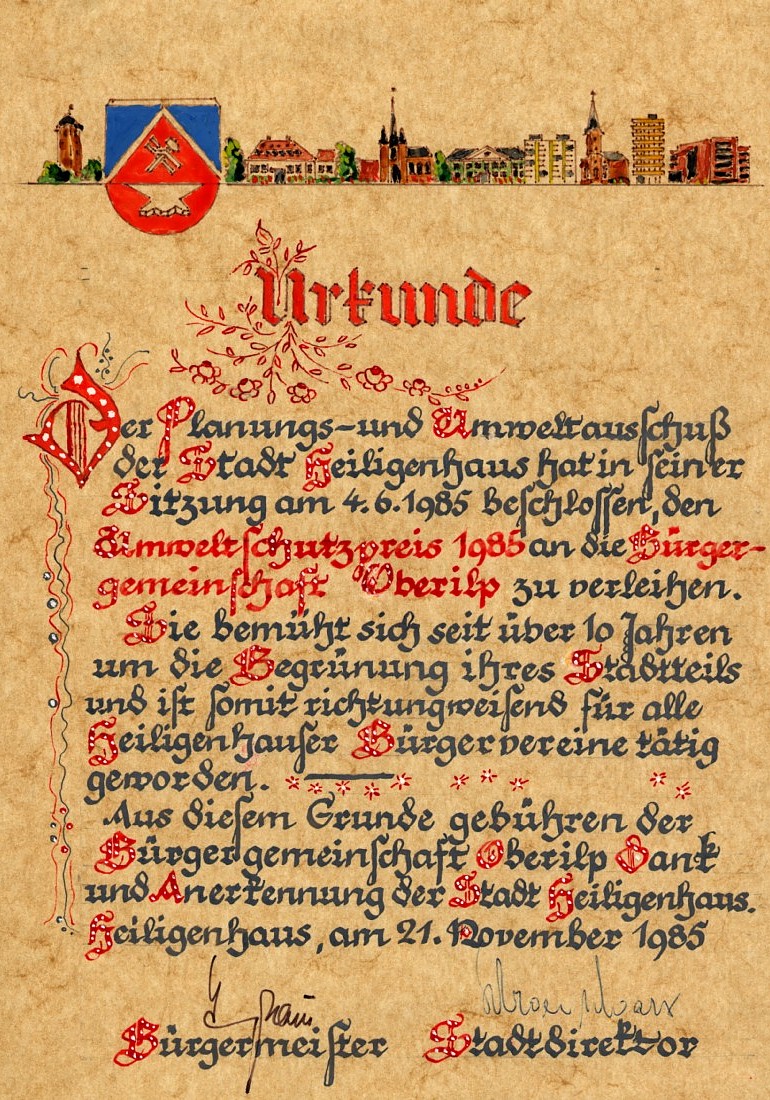 Urkunde
Der Planungs-und Umweltausschuß
der Stadt Heiligenhaus hat in seiner
Sitzung am 4.6.1985 beschlossen, den
Umweltschutzpreis 1985 an die Bürger-
gemeinschaft Oberilp zu verleihen.
Sie bemüht sich seit über 10 Jahren
um die Begrünung ihres Stadtteils
und ist somit richtungweisend für alle
Heiligenhauser Bürgervereine tätig
geworden.
Aus diesem Grunde gebühren der
Bürgergemeinschaft Oberilp Dank
und Anerkennung der Stadt Heiligenhaus.
Heiligenhaus, am 21. November 1985
Bürgermeister Stadtdirektor